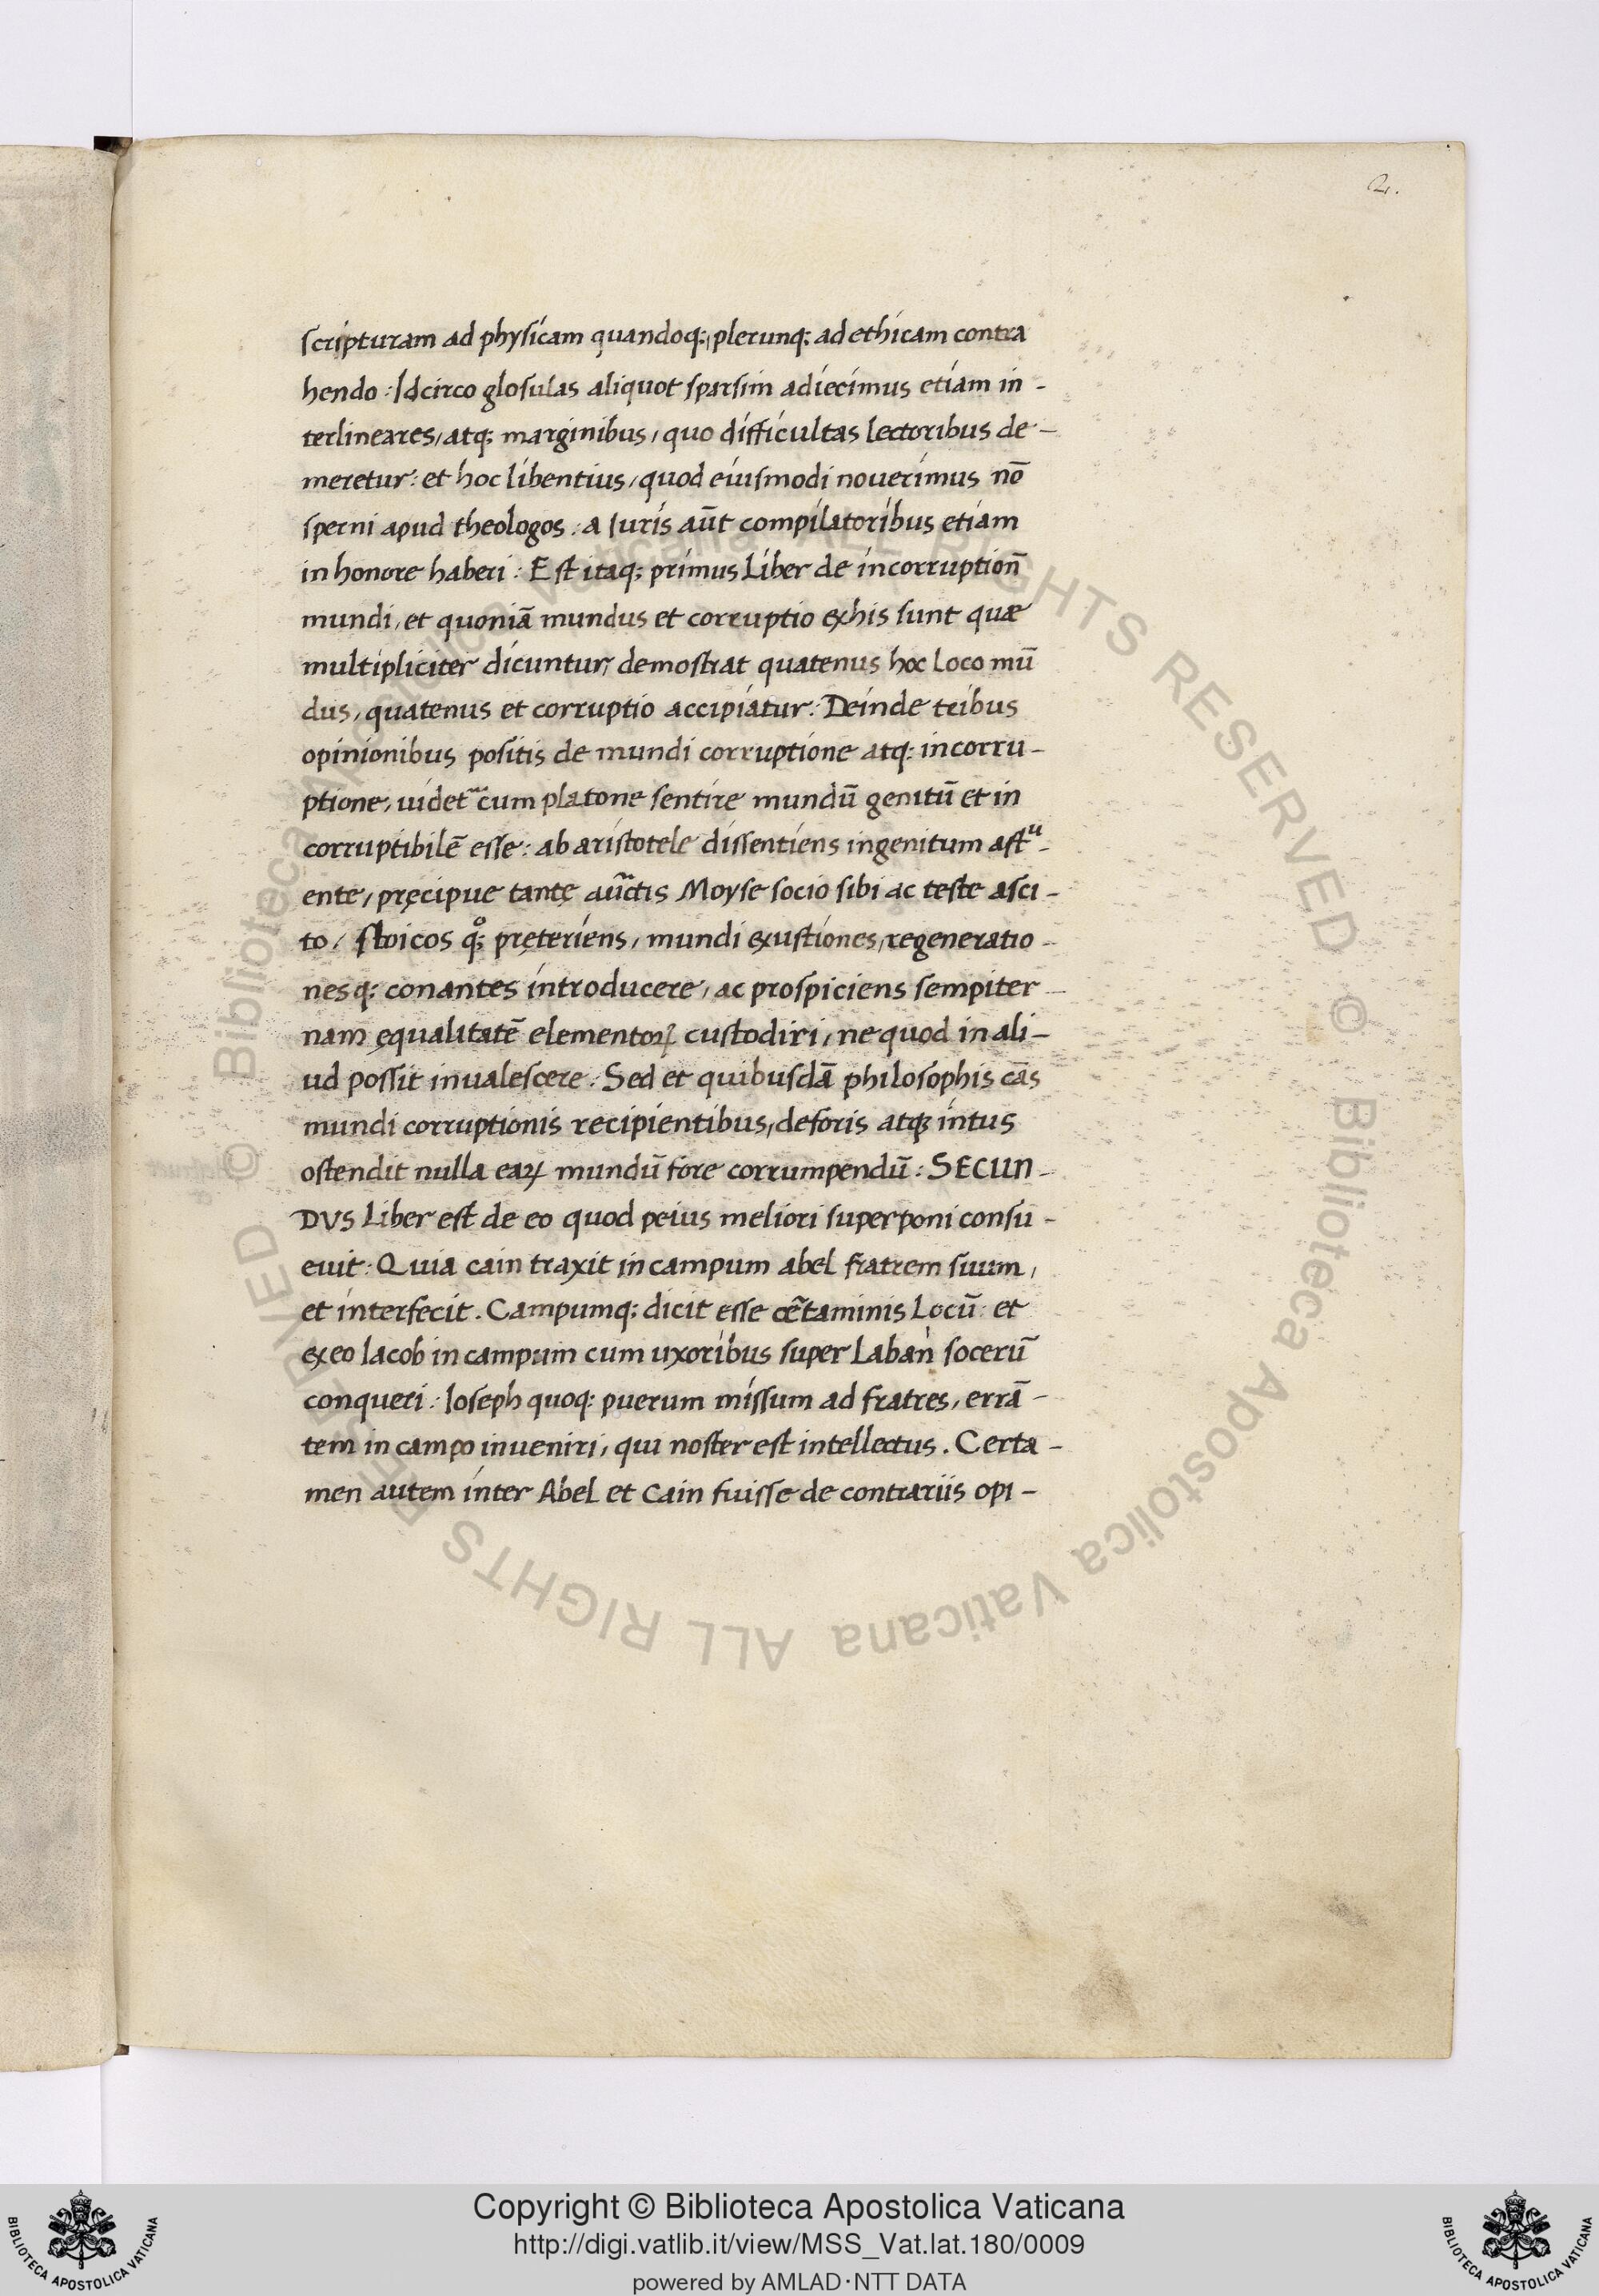 2.
scripturam ad physicam quandoq; plerunq; ad ethicam contra
hendo : Idcirco glosulas aliquot sparsim adiecimus etiam in -
terlineares, atq; marginibus, quo difficultas lectoribus de -
meretur : et hoc libentius, quod eiusmodi nouerimus nō
sperni apud theologos . a Iuris aūt compilatoribus etiam
in honore haberi : Est itaq; primus Liber de incorruption̄
mundi, et quoniā mundus et corruptio ex his sunt quæ
multipliciter dicuntur, demostrat quatenus hoc loco mū
dus, quatenus et corruptio accipiatur : Deinde tribus
opinionibus positis de mundi corruptione atq; incorru -
ptione, uidet᷑ cum platone sentire mundū genitū et in
corruptibilē esse : ab aristotele dissentiens ingenitum astͧ -
ente, pręcipue tantę auc̄tis Moyse socio sibi ac teste asci -
to, stoicos qͦ; pręteriens, mundi exustiones, regeneratio -
nesq; conantes introducere, ac prospiciens sempiter -
nam ęqualitatē elementoꝝ custodiri, ne quod in ali -
ud possit inualescere : Sed et quibusdā philosophis cās
mundi corruptionis recipientibus, deforis atq; intus
ostendit nulla eaꝝ mundū fore corrumpendū : SECUN -
DVS Liber est de eo quod peius meliori superponi consu -
euit : Quia cain traxit in campum abel fratrem suum,
et interfecit . Campumq; dicit esse cētaminis Locū : et
ex eo Iacob in campum cum uxoribus super Laban socerū
conqueri : Ioseph quoq; puerum missum ad fratres, errā -
tem in campo inueniri, qui noster est intellectus . Certa -
men autem inter Abel et Cain fuisse de contrariis opi -
© Biblioteca Apostolica Vaticana ALL RIGHTS RESERVED © Biblioteca Apostolica Vaticana ALL RIGHTS RESERVED
Copyright © Biblioteca Apostolica Vaticana
http://digi.vatlib.it/view/MSS_Vat.lat.180/0009
powered by AMLAD·NTT DATA
BIBLIOTECA APOSTOLICA VATICANA
BIBLIOTECA APOSTOLICA VATICANA